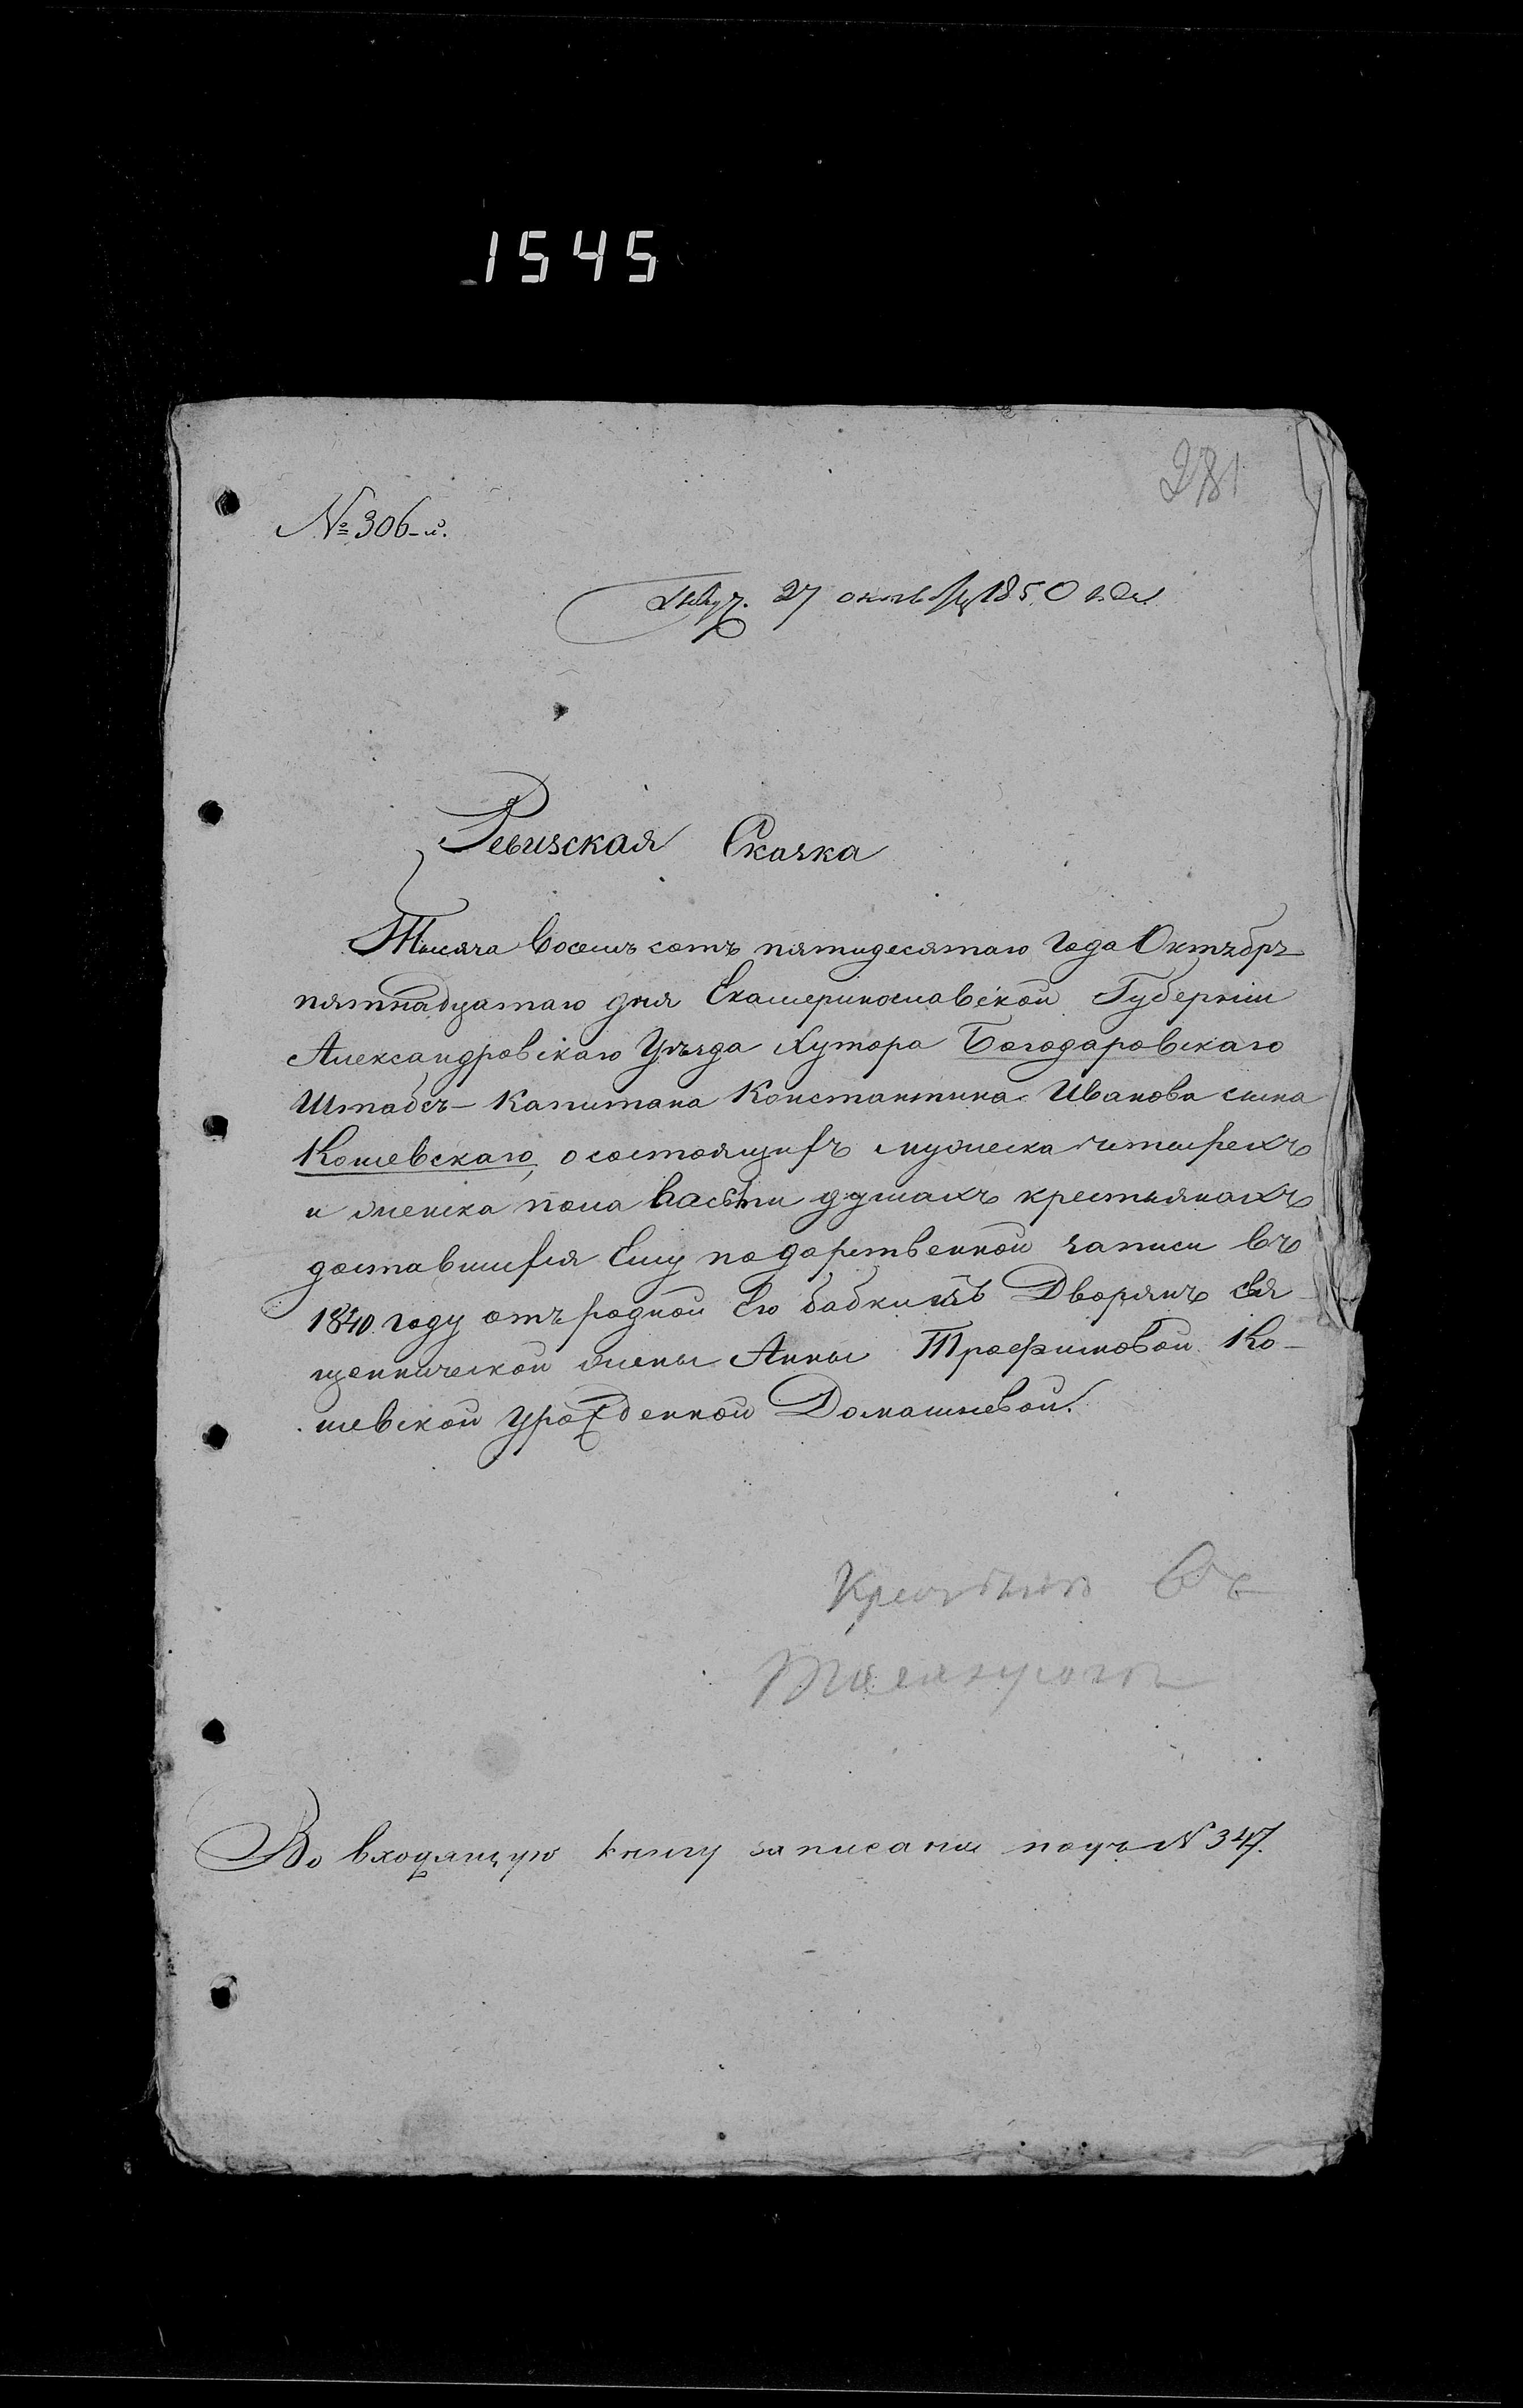 1545
281
№ 306-й.
Получ. 27 октября 1850 года
Ревизская Сказка
Тысяча восемь сотъ пятидесятаго года Октября
пятнадцатаго дня Екатеринославской Губерніи
Александровскаго Уѣзда Хутора Богодаровскаго
Штабсъ-Капитана Константина Иванова сына
Кошевскаго, о состоящихъ мужеска четырехъ
и женска пола душахъ крестьянахъ
доставшихся Ему по дарственной записи въ
1840 году отъ родной Его бабки изъ Дворянъ свя-
щеннической жены Анны Трофимовой Ко-
шевской урожденной Домашневой.
Въ
Во входящую книгу записана подъ N 347.